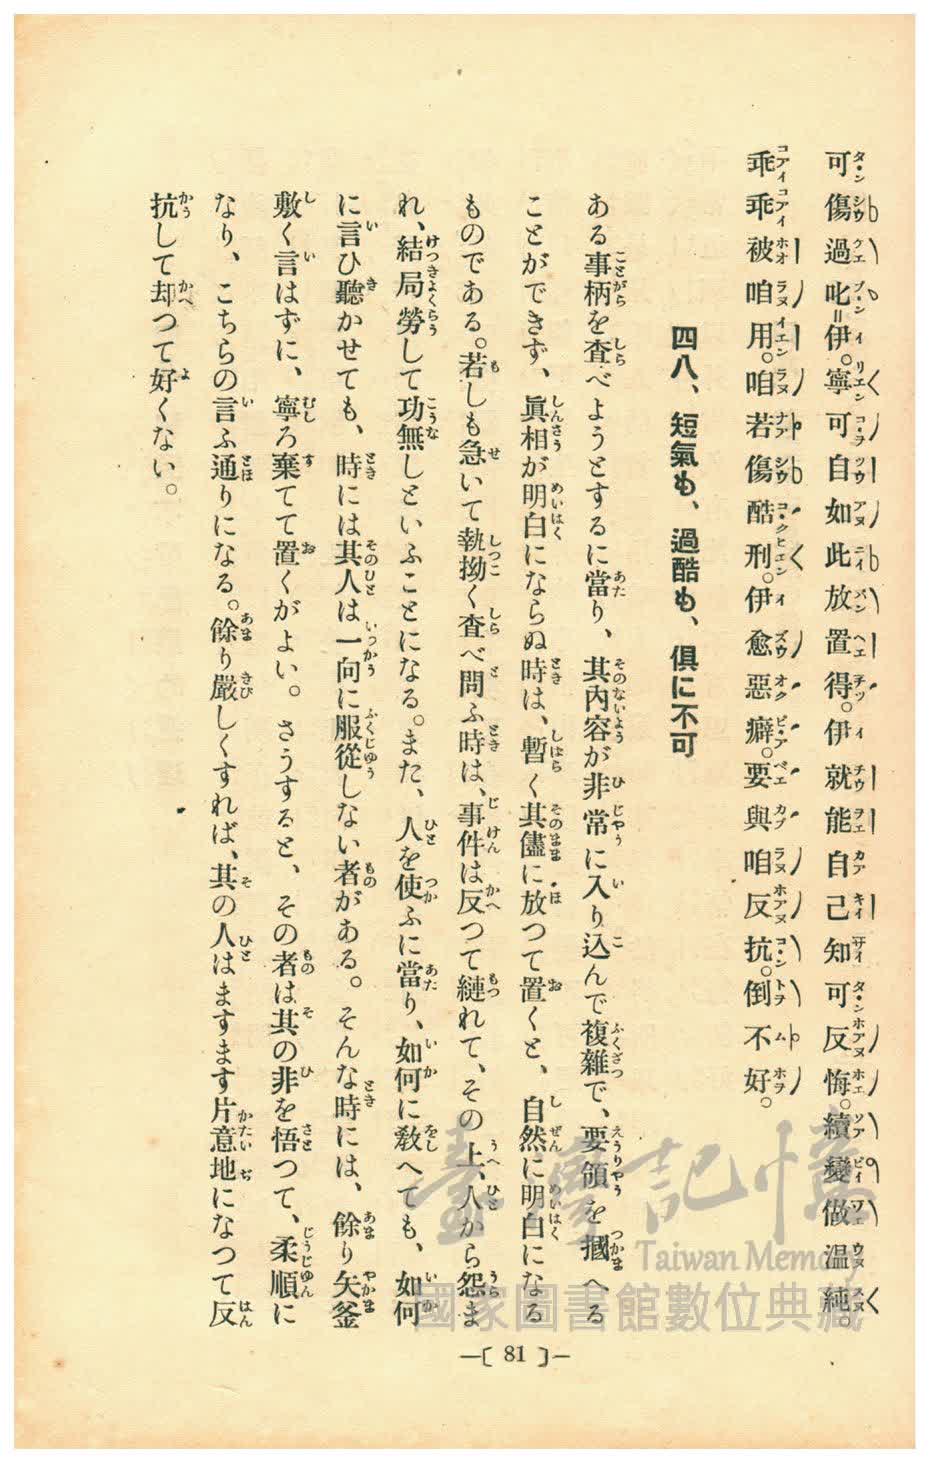 可傷過叱伊。寧可自如此放置得。伊就能自己知可反悔。續變做溫純。
乖乖被咱用。咱若傷酷刑。伊愈惡癖。要與咱反抗。倒不好。
四八、短氣も、過酷も、俱に不可
ある事柄を査べようとするに當り、其內容が非常に入り込んで複雜で、要領を摑へる
ことができず、眞相が明白にならぬ時は、暫く其儘に放つて置くと、自然に明白になる
ものである。若しも急いて執拗く査べ問ふ時は、事件は反つて縺れて、その上、人から怨ま
れ、結局勞して功無しといふことになる。また、人を使ふに當り、如何に敎へても、如何
に言ひ聽かせても、時には其人は一向に服從しない者がある。そんな時には、餘り矢釜
敷く言はずに、寧ろ棄てて置くがよい。さうすると、その者は其の非を悟つて、柔順に
なり、こちらの言ふ通りになる。餘り嚴しくすれば、其の人はますます片意地になつて反
抗して却つて好くない。
—〔 81 〕—
臺灣記憶
Taiwan Memory
國家圖書館數位典藏